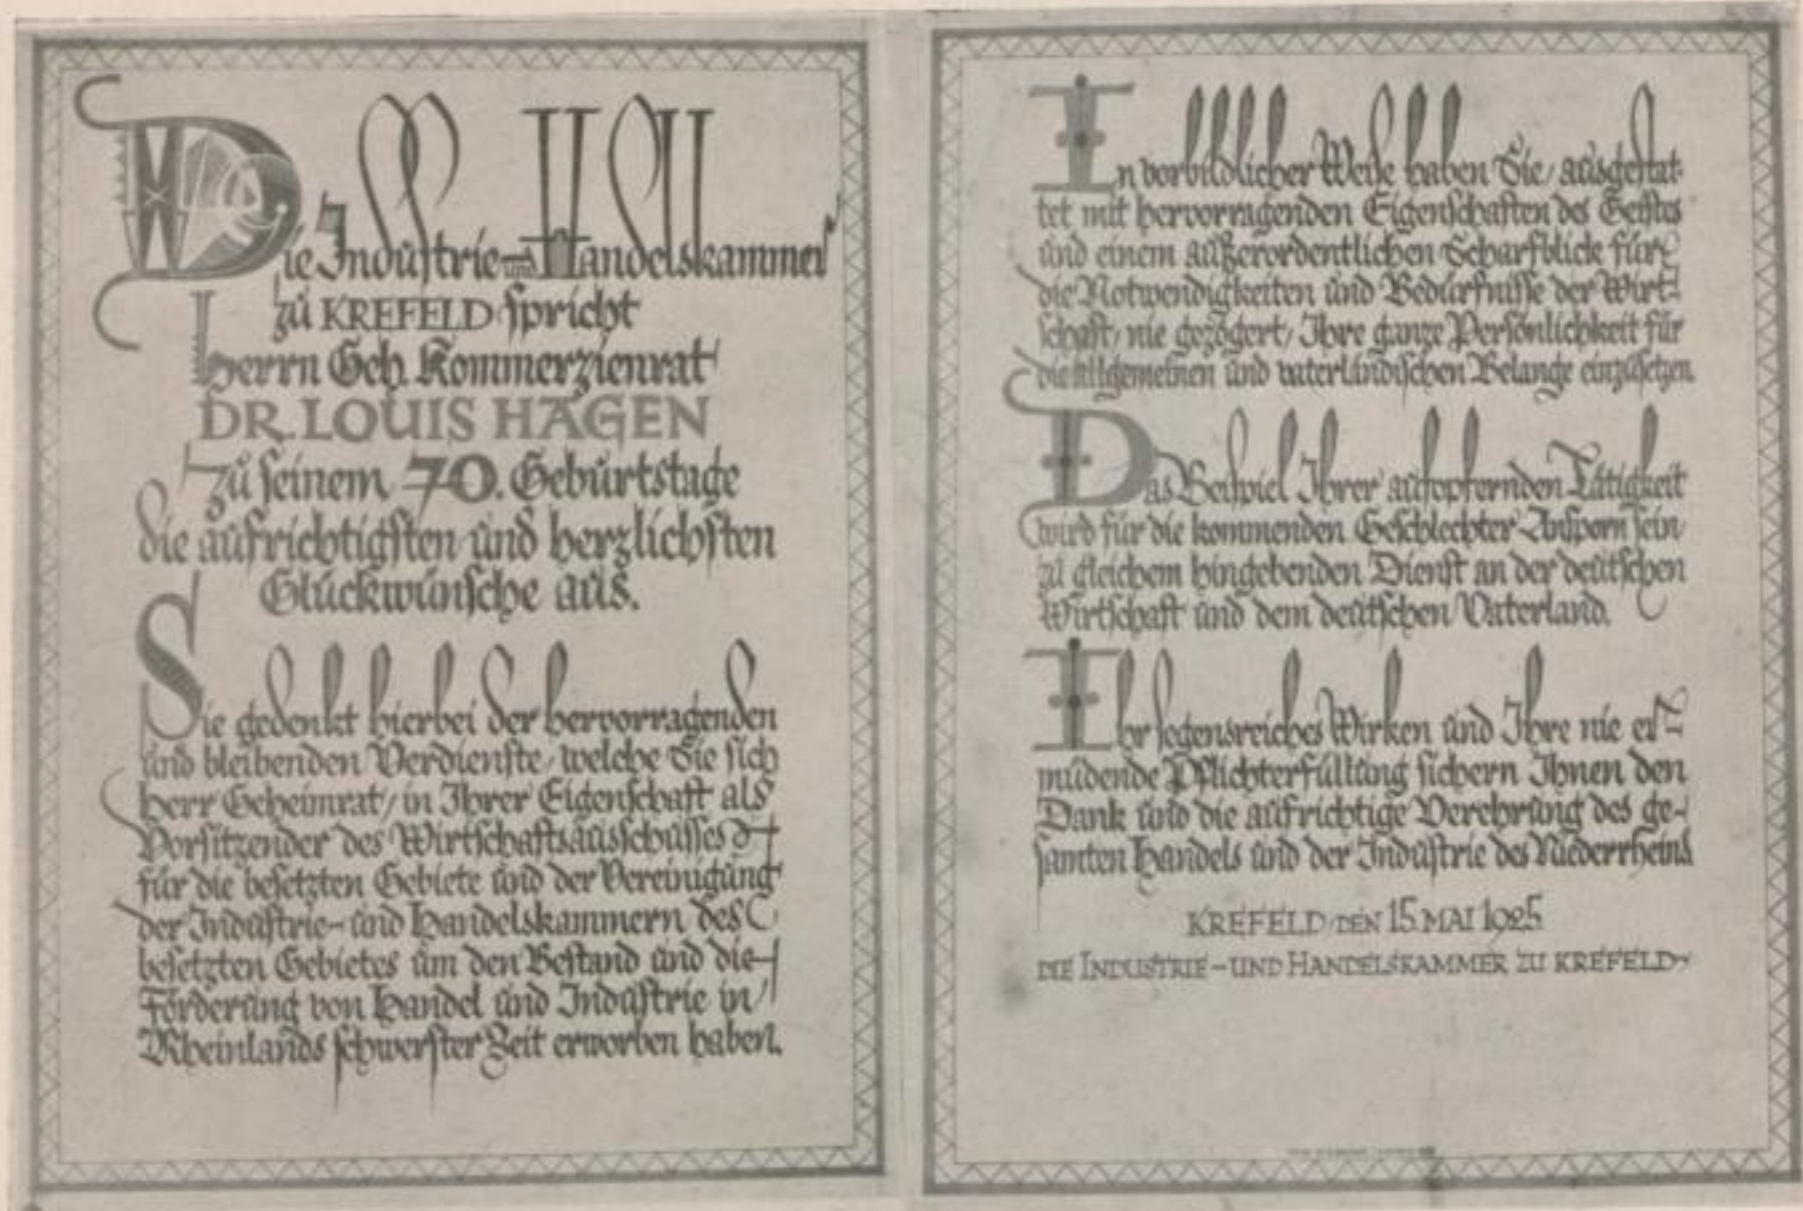 Die Industrie- und Handelskammer
zu KREFELD spricht
Herrn Geh. Kommerzienrat
DR. LOUIS HAGEN
zu seinem 70. Geburtstage
die aufrichtigsten und herzlichsten
Glückwünsche aus.
Sie gedenkt hierbei der hervorragenden
und bleibenden Verdienste, welche Sie sich
Herr Geheimrat, in Ihrer Eigenschaft als
Vorsitzender des Wirtschaftsausschusses
für die besetzten Gebiete und der Vereinigung
der Industrie- und Handelskammern des
besetzten Gebietes um den Bestand und die
Förderung von Handel und Industrie in
Rheinlands schwerster Zeit erworben haben.
In vorbildlicher Weise haben Sie, ausgestat-
tet mit hervorragenden Eigenschaften des Geistes
und einem außerordentlichen Scharfblick für
die Notwendigkeiten und Bedürfnisse der Wirt-
schaft, nie gezögert, Ihre ganze Persönlichkeit für
die allgemeinen und vaterländischen Belange einzusetzen.
Das Beispiel Ihrer aufopfernden Tätigkeit
wird für die kommenden Geschlechter Ansporn sein
zu gleichem hingebenden Dienst an der deutschen
Wirtschaft und dem deutschen Vaterland.
Ihr segensreiches Wirken und Ihre nie er-
müdende Pflichterfüllung sichern Ihnen den
Dank und die aufrichtige Verehrung des ge-
samten Handels und der Industrie des Niederrheins
KREFELD, DEN 15. MAI 1925
DIE INDUSTRIE-UND HANDELSKAMMER ZU KREFELD